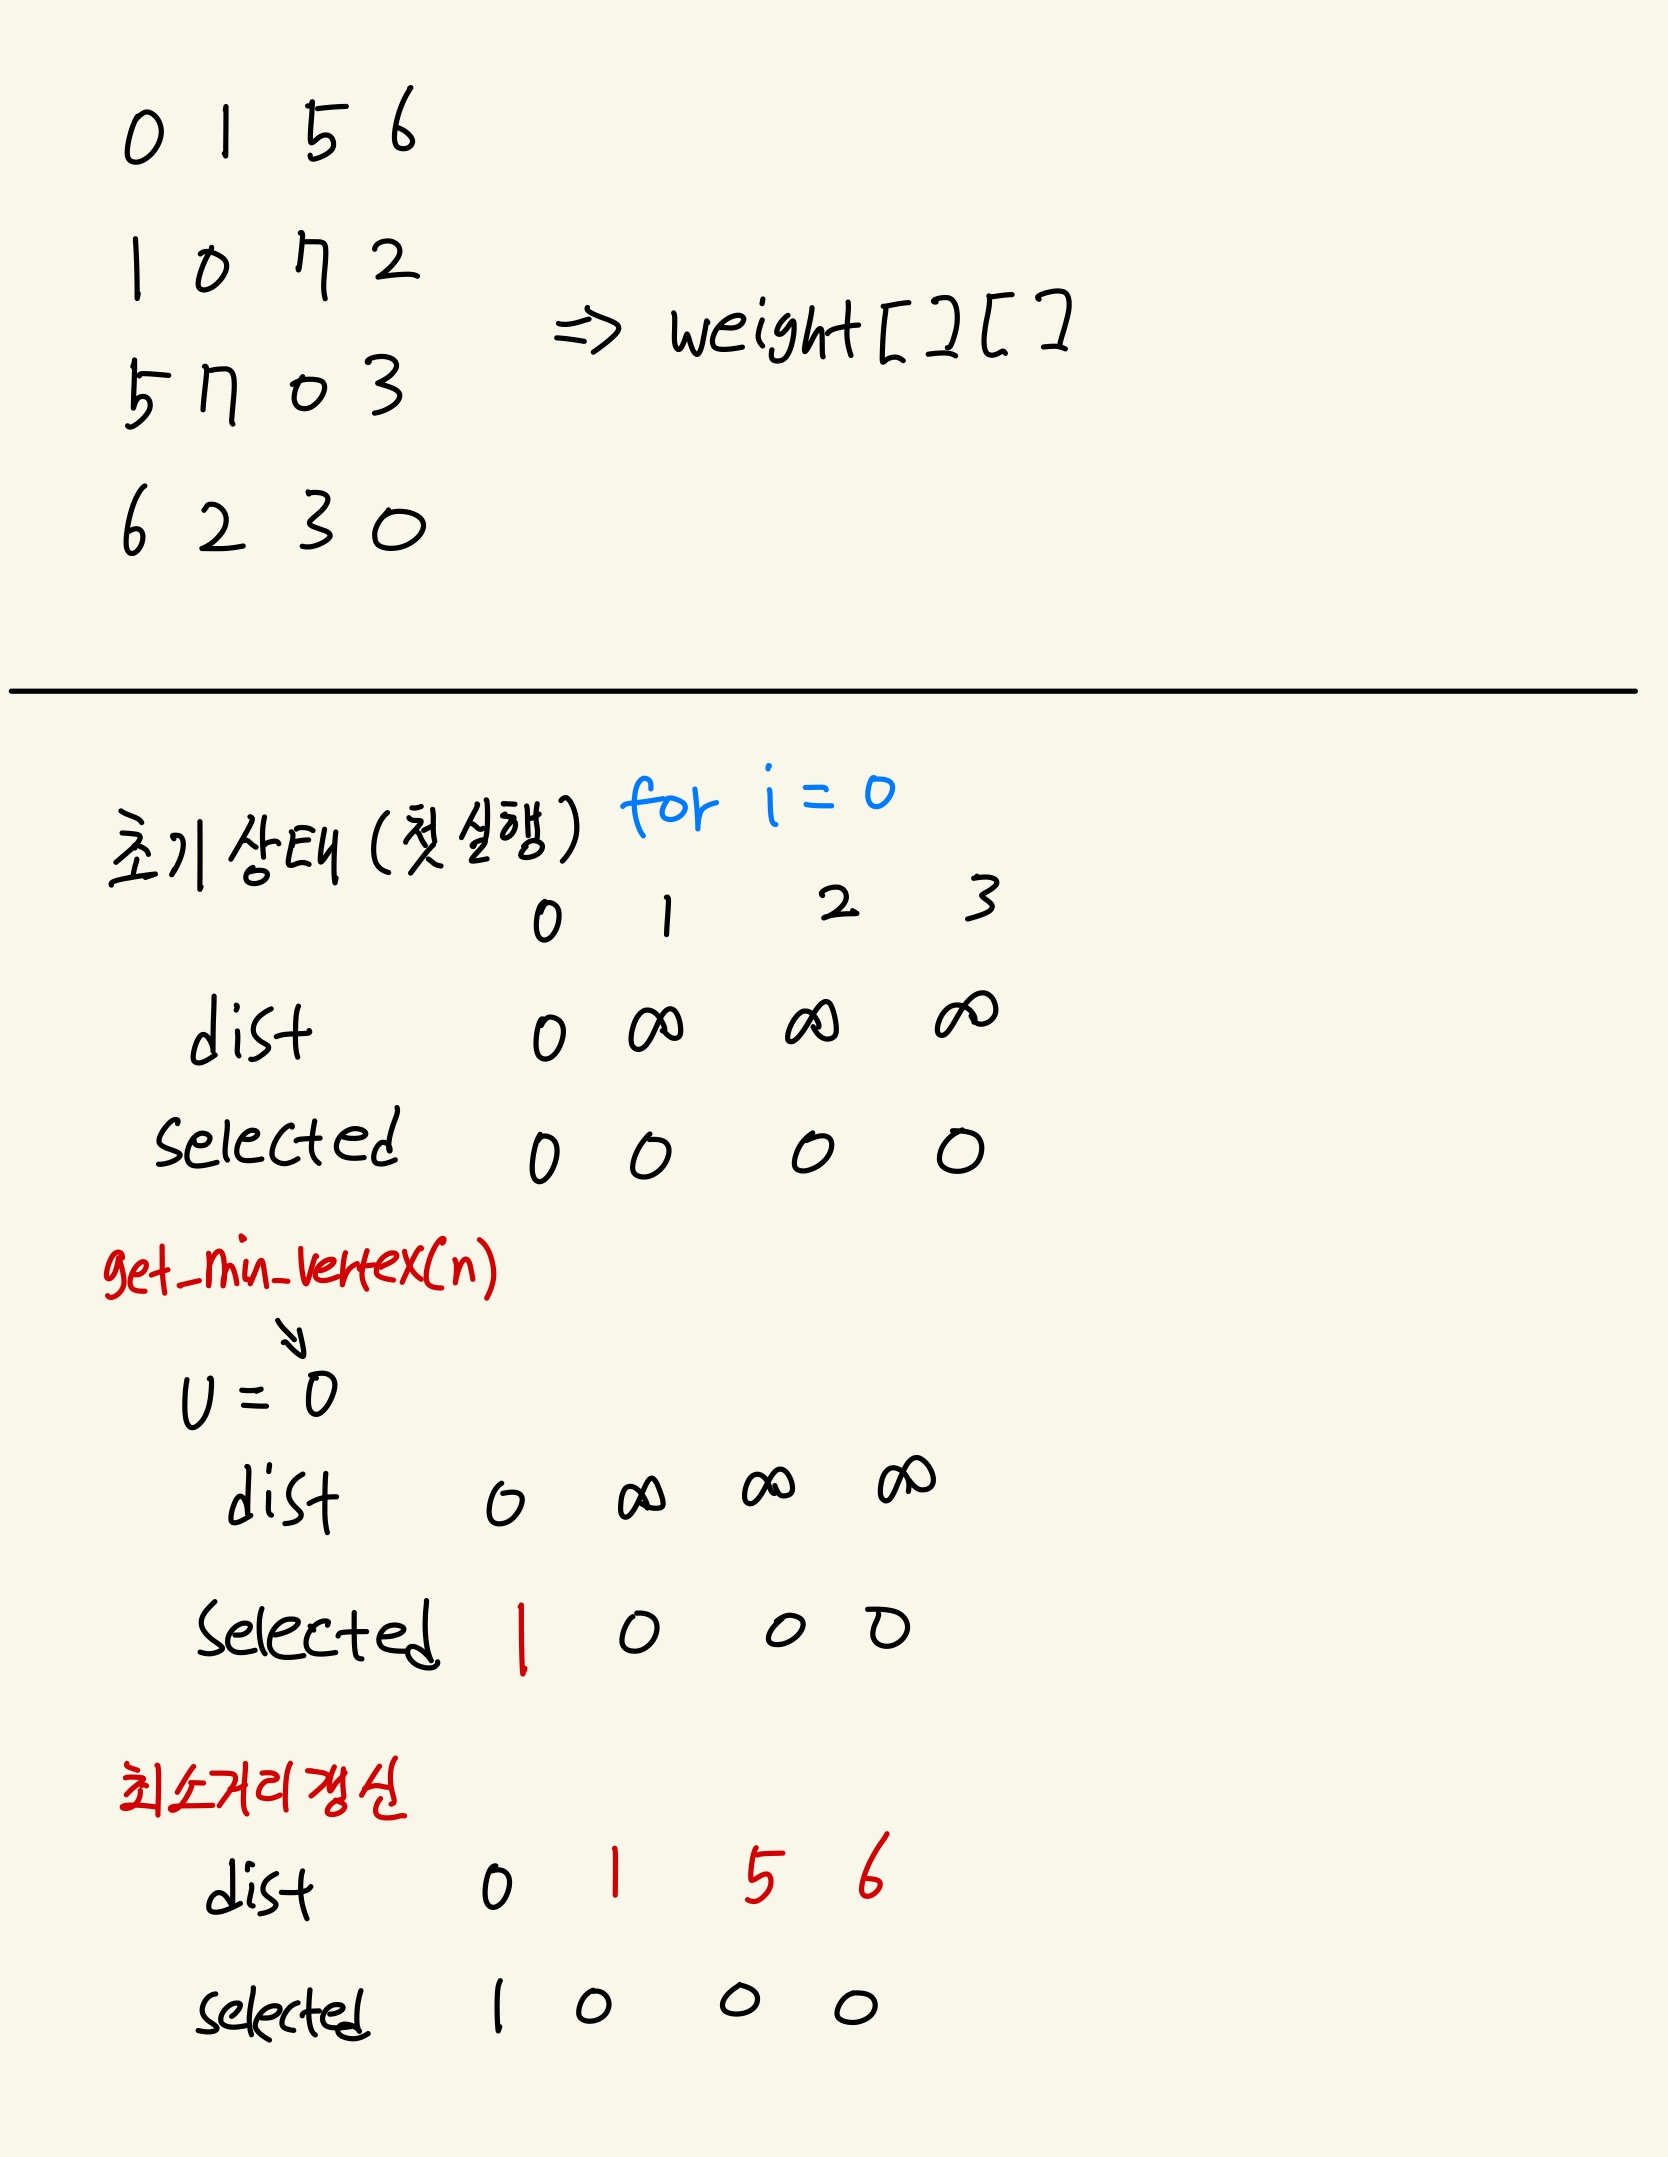 0 1 5 6
1 0 7 2
5 7 0 3
6 2 3 0
=> weight[][]
초기 상태 (첫 실행) for i = 0
0 1 2 3
dist 0 ∞ ∞ ∞
selected 0 0 0 0
get_min_vertex(n)
↘
U = 0
dist 0 ∞ ∞ ∞
selected 1 0 0 0
최소거리 갱신
dist 0 1 5 6
selected 1 0 0 0